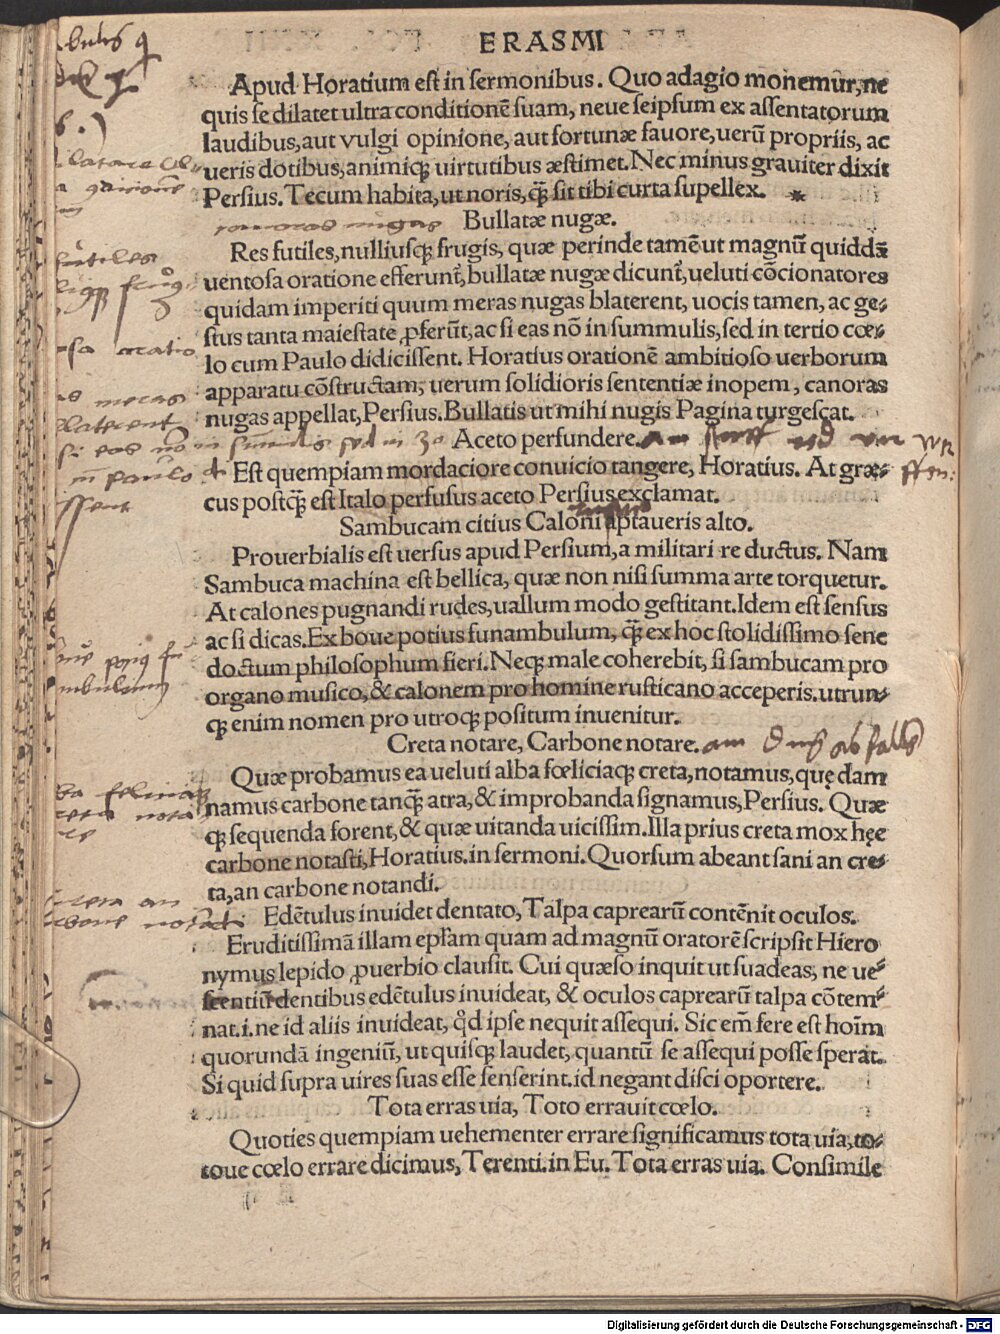 ERASMI
Apud Horatium est in sermonibus. Quo adagio monemur, ne
quis se dilatet ultra conditionē suam, neue seipsum ex assentatorum
laudibus, aut vulgi opinione, aut fortunæ fauore, uerū propriis, ac
ueris dotibus, animiq; uirtutibus æstimet. Nec minus grauiter dixit
Persius. Tecum habita, ut noris, q̄ sit tibi curta supellex. *
Bullatæ nugæ.
Res futiles, nulliusq; frugis, quæ perinde tamē ut magnū quiddā
uentosa oratione efferunt̃, bullatæ nugæ dicunt̃, ueluti cōcionatores
quidam imperiti quum meras nugas blaterent, uocis tamen, ac ge-
stus tanta maiestate ꝓferūt, ac si eas nō in summulis, sed in tertio cœ-
lo cum Paulo didicissent. Horatius orationē ambitioso uerborum
apparatu cōstructam, uerum solidioris sententiæ inopem, canoras
nugas appellat, Persius. Bullatis ut mihi nugis Pagina turgescat.
Aceto perfundere.
Est quempiam mordaciore conuicio tangere, Horatius. At græ-
cus postq̄ est Italo perfusus aceto Persius exclamat.
Sambucam citius Caloni aptaueris alto.
Prouerbialis est uersus apud Persium, a militari re ductus. Nam
Sambuca machina est bellica, quæ non nisi summa arte torquetur.
At calones pugnandi rudes, uallum modo gestitant. Idem est sensus
ac si dicas. Ex boue potius funambulum, q̄ ex hoc stolidissimo sene
doctum philosophum fieri. Neq; male coherebit, si sambucam pro
organo musico, & calonem pro homine rusticano acceperis. utrun-
q; enim nomen pro utroq; positum inuenitur.
Creta notare, Carbone notare.
Quæ probamus ea ueluti alba fœliciaq; creta, notamus, quę dam
namus carbone tanq̄ atra, & improbanda signamus, Persius. Quæ
q; sequenda forent, & quæ uitanda uicissim. Illa prius creta mox hęe
carbone notasti, Horatius. in sermoni. Quorsum abeant sani an cre-
ta, an carbone notandi.
Edētulus inuidet dentato, Talpa caprearū contēnit oculos.
Eruditissimā illam epl̃am quam ad magnū oratorē scripsit Hiero
nymus lepido ꝓuerbio clausit. Cui quæso inquit ut suadeas, ne ue-
scentiū dentibus edētulus inuideat, & oculos caprearū talpa cōtem-
nat. i. ne id aliis inuideat, qđ ipse nequit assequi. Sic em̄ fere est hoīm
quorundā ingeniū, ut quisq; laudet, quantū se assequi posse sperat.
Si quid supra uires suas esse senserint. id negant disci oportere.
Tota erras uia, Toto errauit cœlo.
Quoties quempiam uehementer errare significamus tota uia, to-
toue cœlo errare dicimus, Terenti. in Eu. Tota erras uia. Consimile
Digitalisierung gefördert durch die Deutsche Forschungsgemeinschaft - DFG